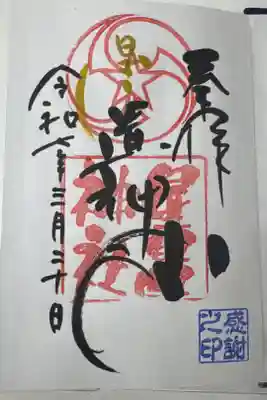 奉拝
道神
星宮神社
令和七年三月三十日
感謝之印